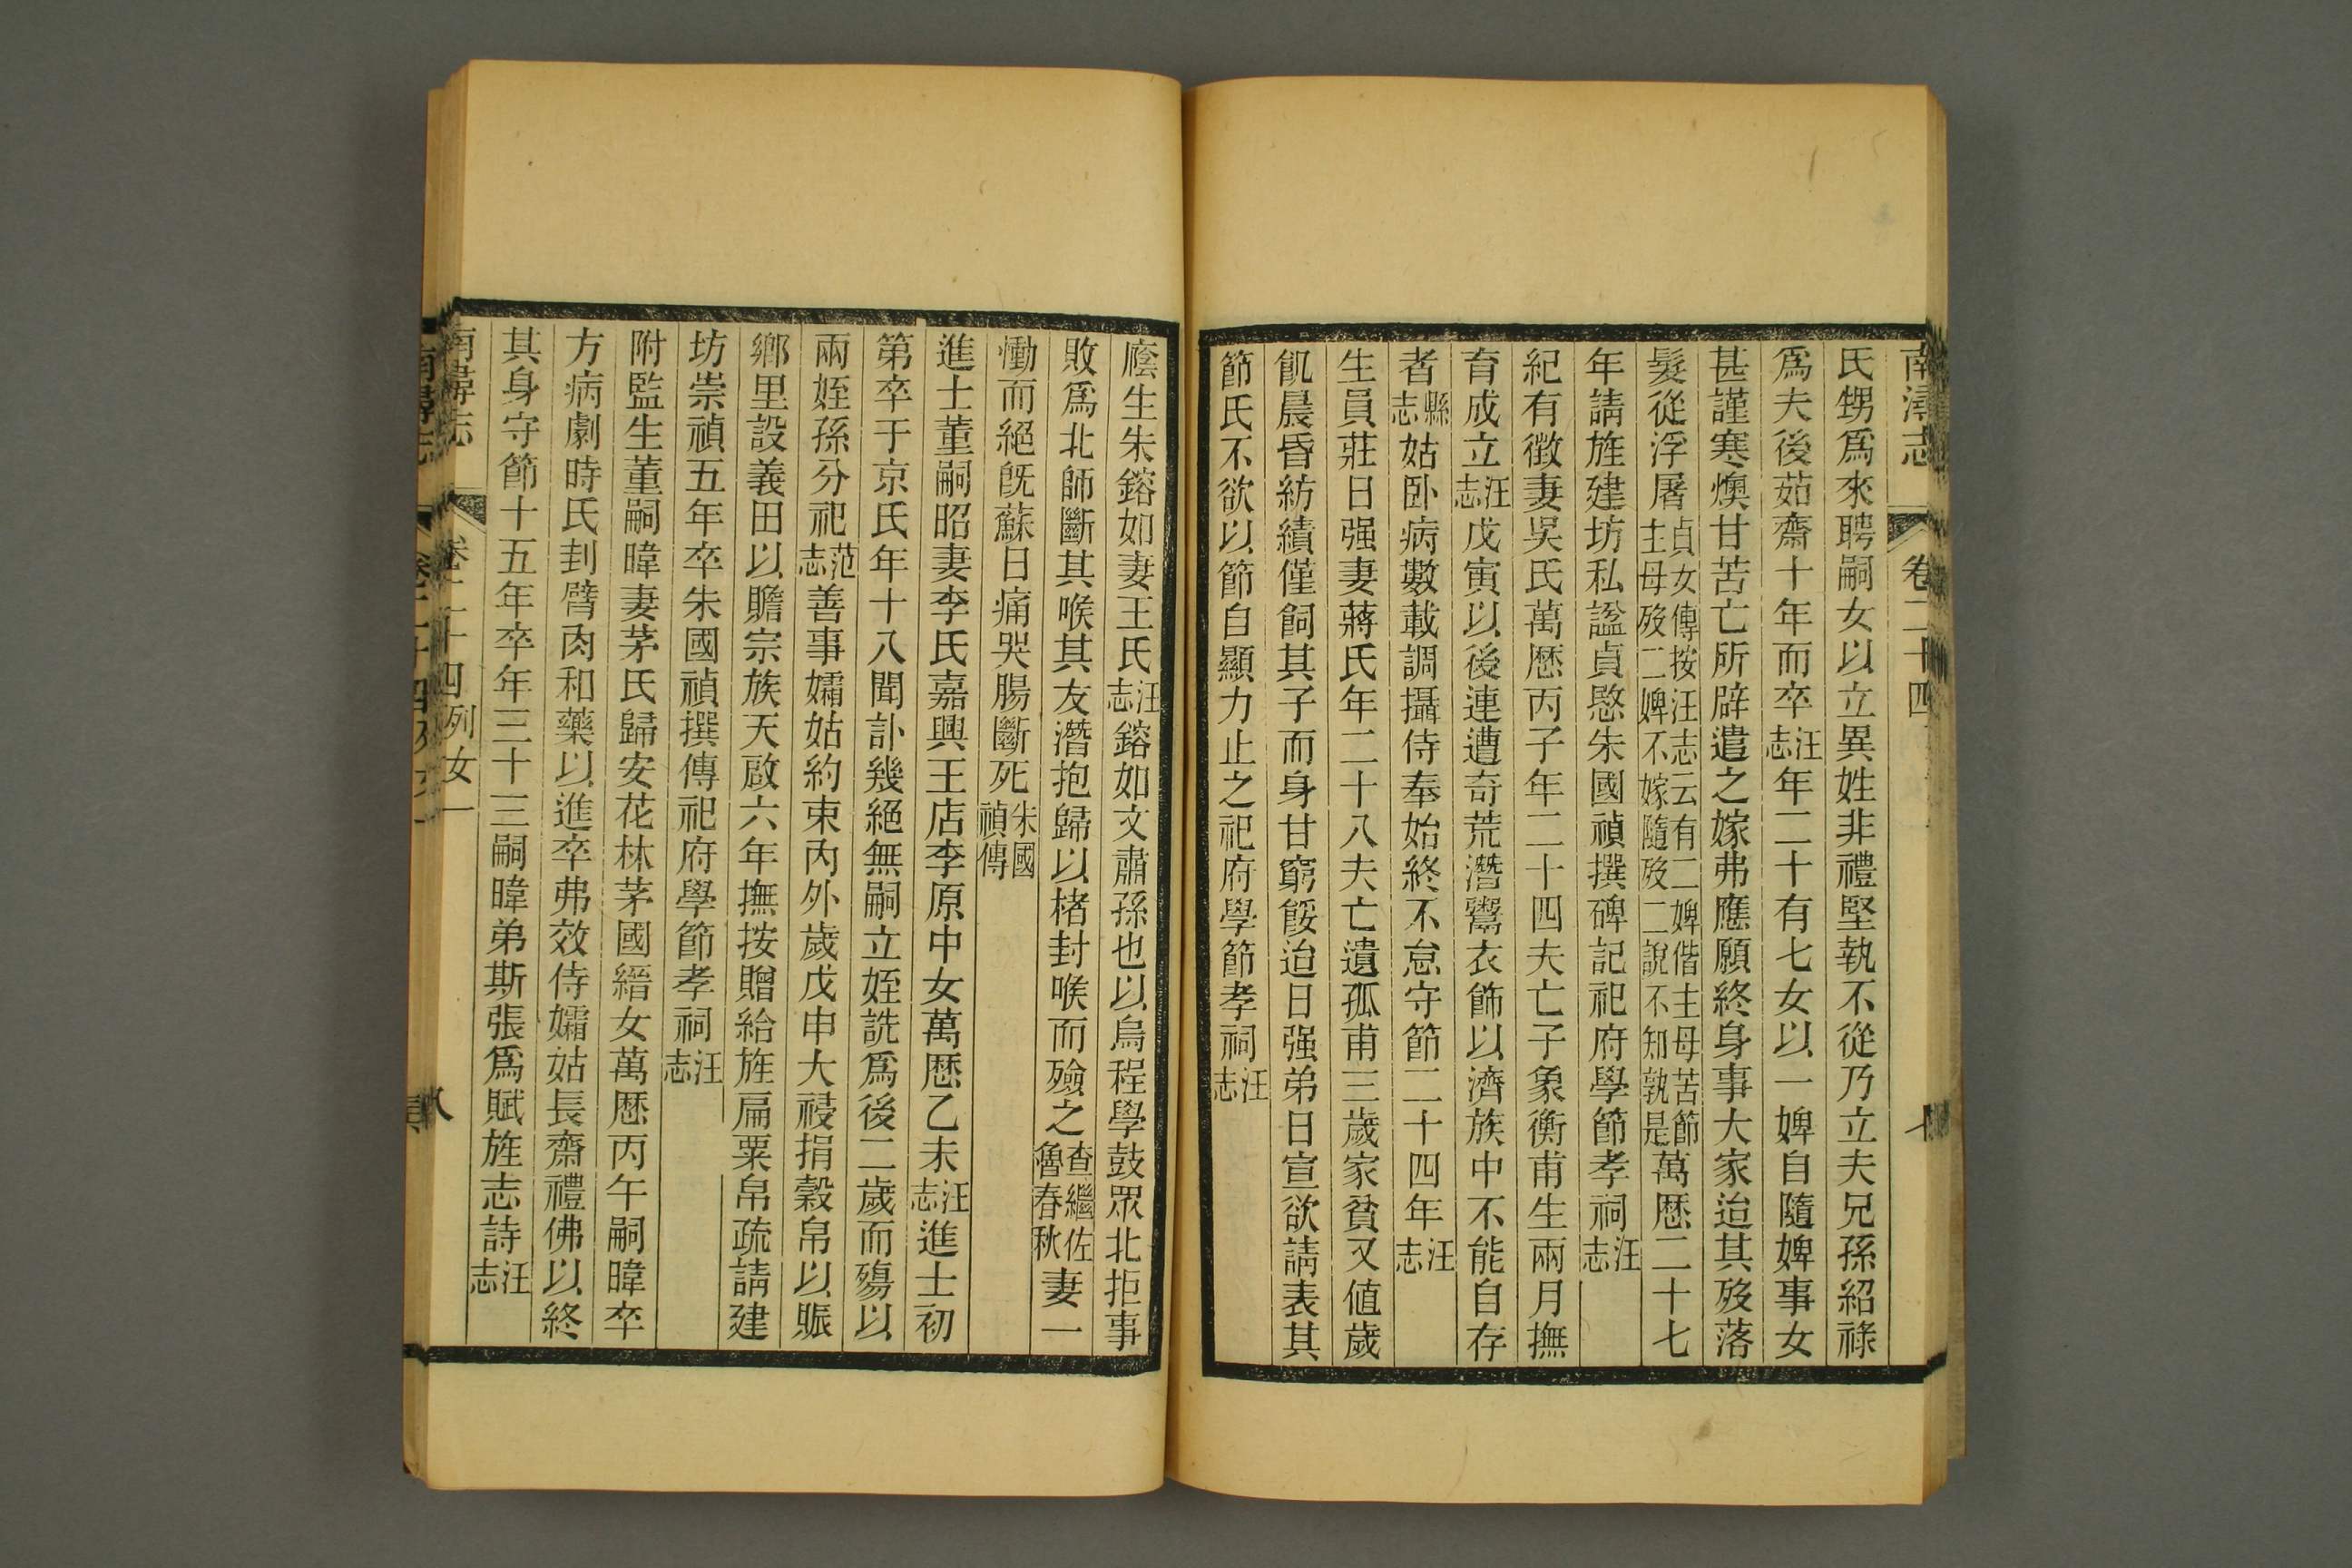 南潯志 卷二十四
氏甥爲來聘嗣女以立異姓非禮堅執不從乃立夫兄孫紹祿
爲夫後茹齋十年而卒汪志年二十有七女以一婢自隨婢事女
甚謹寒燠甘苦亡所辟遣之嫁弗應願終身事大家迨其歿落
髮從浮屠貞女傳按汪志云有二婢偕主母苦節主母歿二婢不嫁隨歿二說不知孰是萬厯二十七
年請旌建坊私諡貞愍朱國禎撰碑記祀府學節孝祠汪志
紀有徵妻吳氏萬厯丙子年二十四夫亡子象衡甫生兩月撫
育成立汪志戊寅以後連遭奇荒潛鬻衣飾以濟族中不能自存
者縣志姑卧病數載調攝侍奉始終不怠守節二十四年汪志
生員莊日强妻蔣氏年二十八夫亡遺孤甫三歲家貧又值歲
飢晨昏紡績僅飼其子而身甘窮餒迨日强弟日宣欲請表其
節氏不欲以節自顯力止之祀府學節孝祠汪志
廕生朱鎔如妻王氏汪志鎔如文肅孫也以烏程學鼓眾北拒事
敗爲北師斷其喉其友潛抱歸以楮封喉而殮之查繼佐魯春秋妻一
慟而絕旣蘇日痛哭腸斷死朱國禎傳
進士董嗣昭妻李氏嘉興王店李原中女萬厯乙未汪志進士初
第卒于京氏年十八聞訃幾絕無嗣立姪詵爲後二歲而殤以
兩姪孫分祀范志善事孀姑約束內外歲戊申大祲捐穀帛以賑
鄉里設義田以贍宗族天啟六年撫按贈給旌扁粟帛疏請建
坊崇禎五年卒朱國禎撰傳祀府學節孝祠汪志
附監生董嗣暐妻茅氏歸安花林茅國縉女萬厯丙午嗣暐卒
方病劇時氏刲臂肉和藥以進卒弗效侍孀姑長齋禮佛以終
其身守節十五年卒年三十三嗣暐弟斯張爲賦旌志詩汪志
南潯志 卷二十四 列女一 八